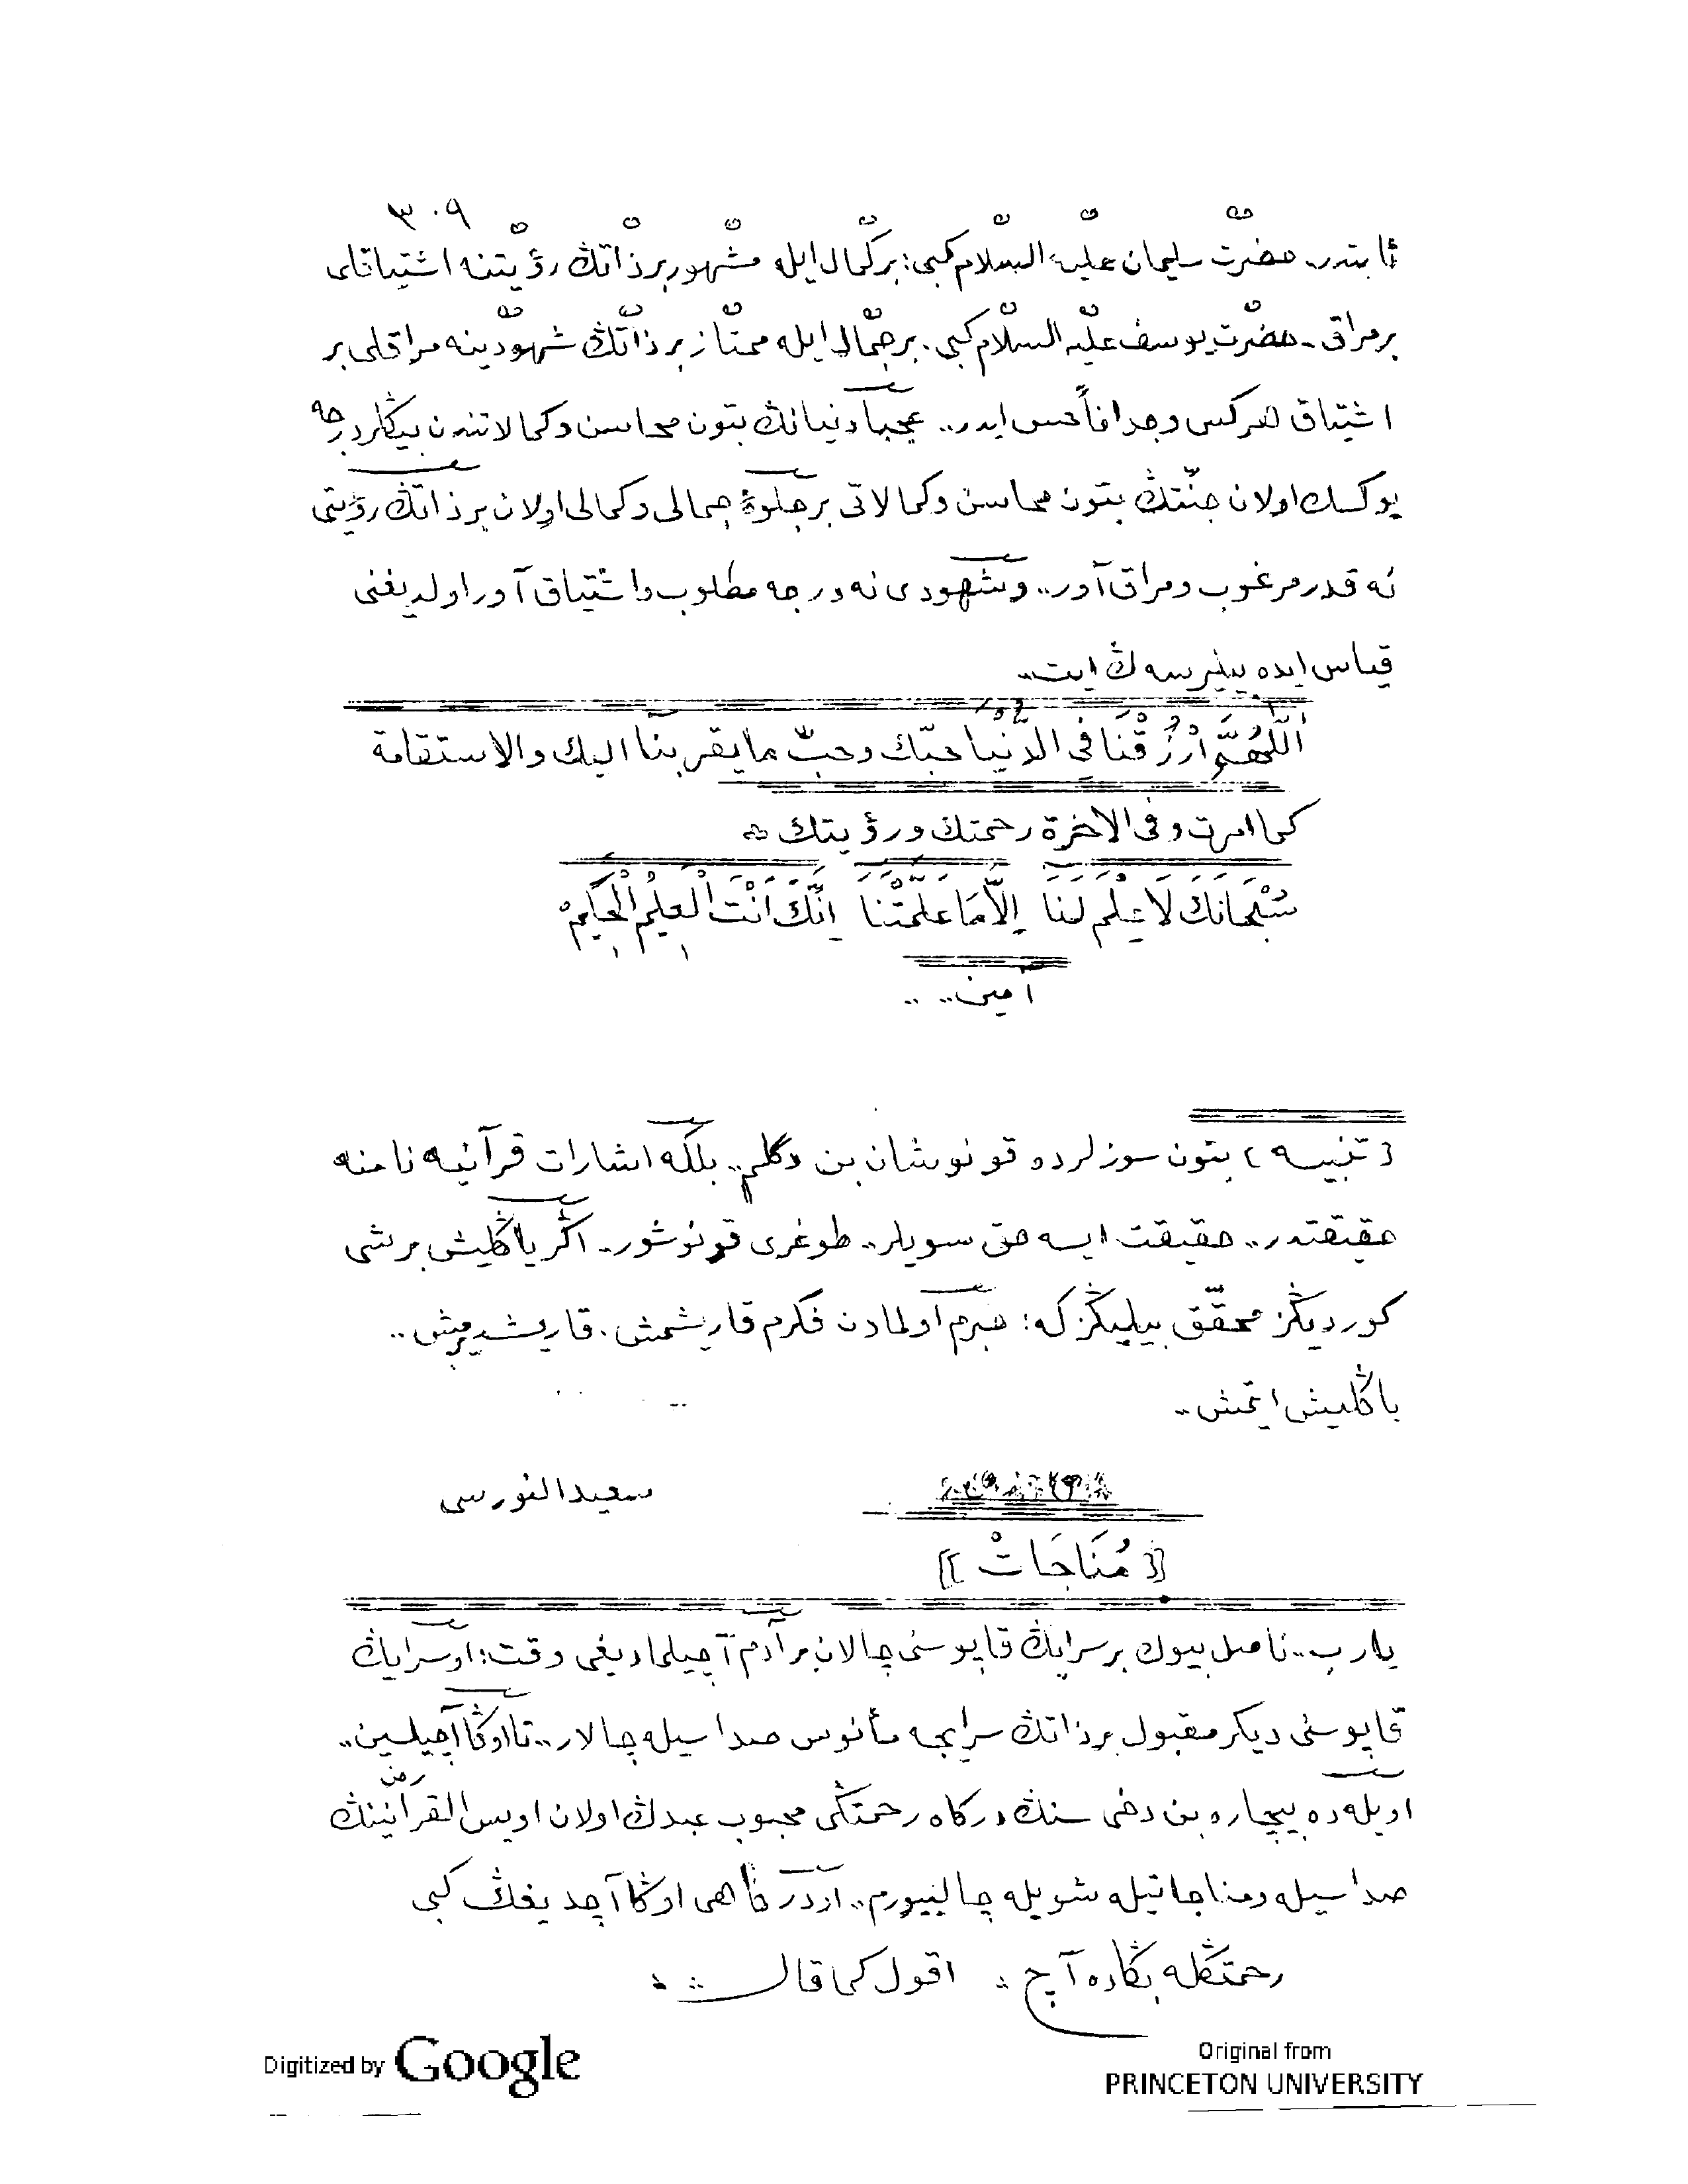 ٣٠٩
ثابتدر. حضرت سليمان عليه السلام كبى: بر كمال ايله مشهور بر ذاتڭ رؤيتنه اشتياقلى
بر مراق. حضرت يوسف عليه السلام كبى. بر جمال ايله ممتاز بر ذاتڭ شهودينه مراقلى بر
اشتياق هركس وجداناً حس ايدر.. عجبا دنيانڭ بتون محاسن وكمالاتندن بيڭلر درجه
يوكسك اولان جنّتڭ بتون محاسن وكمالاتى بر جلوهٔ جمالى وكمالى اولان بر ذاتڭ رؤيتى
نه قدر مرغوب ومراق آور.. وشهودى نه درجه مطلوب واشتياق آور اولديغنى
قياس ايده بيليرسه ڭ ايت..
اَللّٰهُمَّ ارْزُقْنَا فِى الدُّنْيَا حبّك وحبّ ما يقربنا اليك والاستقامة
كما امرت وفى الاخرة رحمتك ورؤيتك
سُبْحَانَكَ لَا عِلْمَ لَنَا اِلَّا مَا عَلَّمْتَنَا اِنَّكَ اَنْتَ الْعَلِيمُ الْحَكِيمُ
آمين.. ..
{تنبيه} بتون سوزلرده قونوشان بن دكلم.. بلكه اشارات قرآنيه نامنه
حقيقتدر.. حقيقت ايسه حق سويلر.. طوغرى قونوشور.. اگر ياڭليش بر شى
كورديڭز محقّق بيليڭز كه: خبرم اولمادن فكرم قاريشمش. قاريشديرمش..
ياڭليش ايتمش..
سعيد النورسى
[[ مُنَاجَاتْ ]]
يارب.. ناصل بيوك بر سرايڭ قاپوسنى چالان بر آدم آچيلماديغى وقت: او سرايڭ
قاپوسنى ديكر مقبول بر ذاتڭ سرايجه مأنوس صداسيله چالار.. تا اوڭا آچيلسين..
اويله ده بيچاره بن دخى سنڭ درگاه رحمتڭى محبوب عبدڭ اولان اويس القرانينڭ رض
صداسيله ومناجاتيله شويله چالييورم.. او درگاهى اوڭا آچديغڭ كبى
رحمتڭله بڭاده آچ اقول كما قال
Digitized by Google
Original from
PRINCETON UNIVERSITY